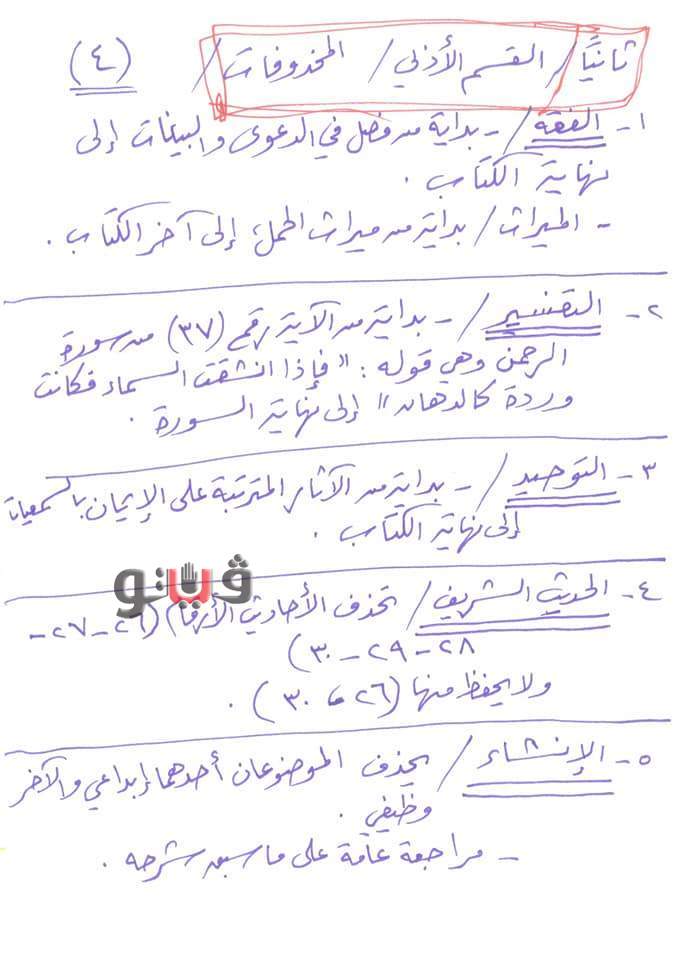 ثانيًا / القسم الأدبي / المحذوفات / (٤)
١- الفقه / - بداية من فصل في الدعوى والبينات إلى
نهاية الكتاب .
- الميراث / بداية من ميراث الحمل، إلى آخر الكتاب .
٢- التفسير / - بداية من الآية رقم (٣٧) من سورة
الرحمن وهي قوله : " فإذا انشقت السماء فكانت
وردة كالدهان " إلى نهاية السورة .
٣- التوحيد / - بداية من الآثار المترتبة على الإيمان بالسمعيات
إلى نهاية الكتاب .
ڤيتو
٤- الحديث الشريف / تحذف الأحاديث الأرقام (٢٦ - ٢٧ -
٢٨ - ٢٩ - ٣٠)
ولا يحفظ منها (٢٦ ، ٣٠) .
٥- الإنشاء / يحذف الموضوعان أحدهما إبداعي والآخر
وظيفي .
- مراجعة عامة على ما سبق شرحه .